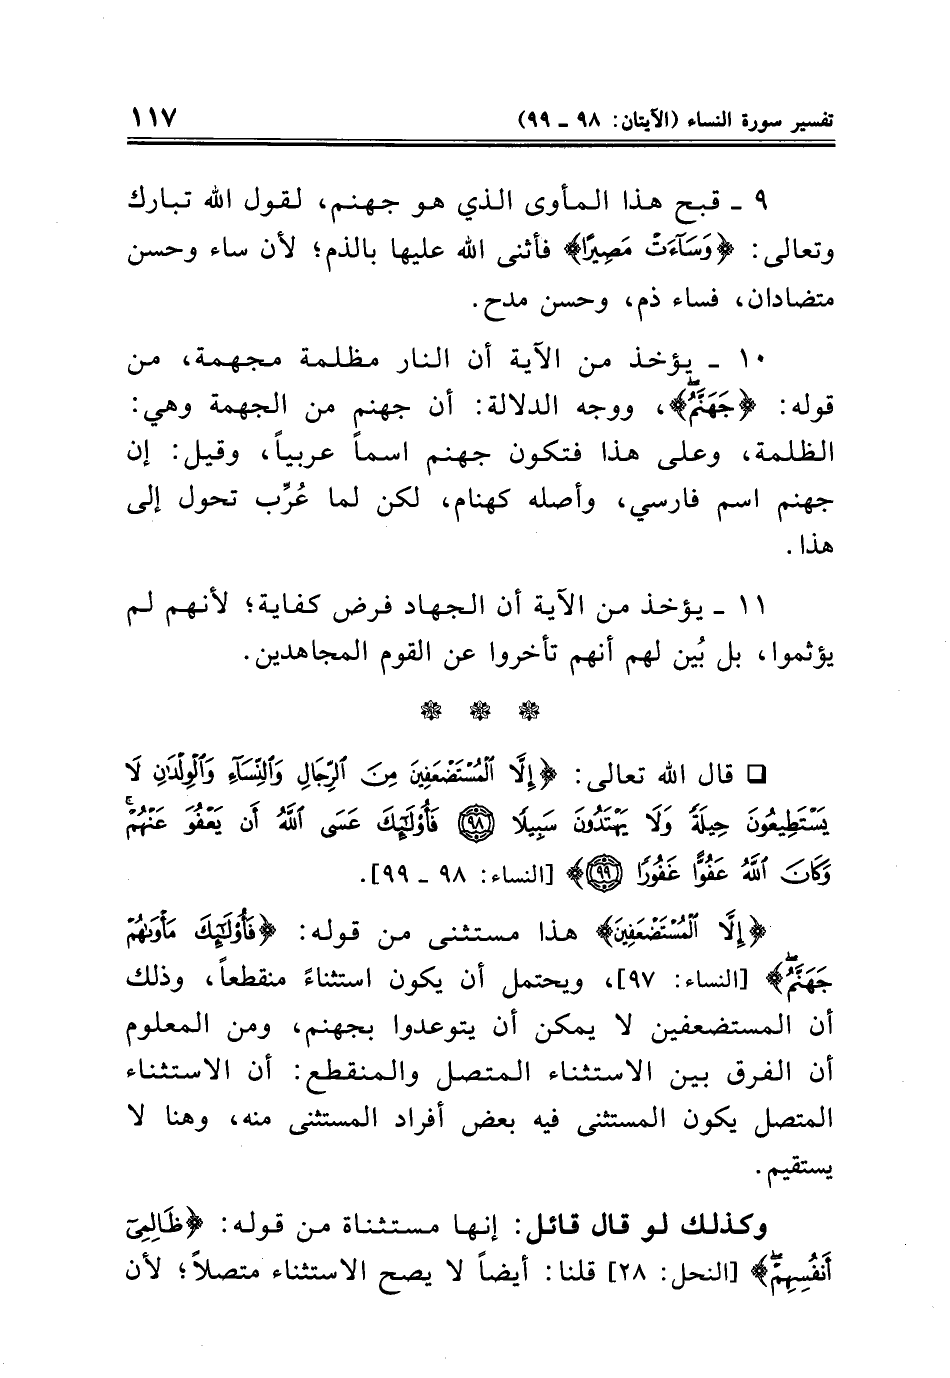 تفسير سورة النساء (الآيتان: ٩٨ ـ ٩٩)
١١٧
٩ ـ قبح هذا المأوى الذي هو جهنم، لقول الله تبارك
وتعالى: ﴿وَسَآءَتْ مَصِيرًا﴾ فأثنى الله عليها بالذم؛ لأن ساء وحسن
متضادان، فساء ذم، وحسن مدح.
١٠ ـ يؤخذ من الآية أن النار مظلمة مجهمة، من
قوله: ﴿جَهَنَّمُۖ﴾، ووجه الدلالة: أن جهنم من الجهمة وهي:
الظلمة، وعلى هذا فتكون جهنم اسماً عربياً، وقيل: إن
جهنم اسم فارسي، وأصله كهنام، لكن لما عُرِّب تحول إلى
هذا.
١١ ـ يؤخذ من الآية أن الجهاد فرض كفاية؛ لأنهم لم
يؤثموا، بل بُين لهم أنهم تأخروا عن القوم المجاهدين.
❁ ❁ ❁
❑ قال الله تعالى: ﴿إِلَّا ٱلْمُسْتَضْعَفِينَ مِنَ ٱلرِّجَالِ وَٱلنِّسَآءِ وَٱلْوِلْدَٰنِ لَا
يَسْتَطِيعُونَ حِيلَةً وَلَا يَهْتَدُونَ سَبِيلًا ﴿٩٨﴾ فَأُو۟لَٰٓئِكَ عَسَى ٱللَّهُ أَن يَعْفُوَ عَنْهُمْۚ
وَكَانَ ٱللَّهُ عَفُوًّا غَفُورًا ﴿٩٩﴾﴾ [النساء: ٩٨ ـ ٩٩].
﴿إِلَّا ٱلْمُسْتَضْعَفِينَ﴾ هذا مستثنى من قوله: ﴿فَأُو۟لَٰٓئِكَ مَأْوَىٰهُمْ
جَهَنَّمُۖ﴾ [النساء: ٩٧]، ويحتمل أن يكون استثناءً منقطعاً، وذلك
أن المستضعفين لا يمكن أن يتوعدوا بجهنم، ومن المعلوم
أن الفرق بين الاستثناء المتصل والمنقطع: أن الاستثناء
المتصل يكون المستثنى فيه بعض أفراد المستثنى منه، وهنا لا
يستقيم.
وكذلك لو قال قائل: إنها مستثناة من قوله: ﴿ظَالِمِىٓ
أَنفُسِهِمْۖ﴾ [النحل: ٢٨] قلنا: أيضاً لا يصح الاستثناء متصلاً؛ لأن